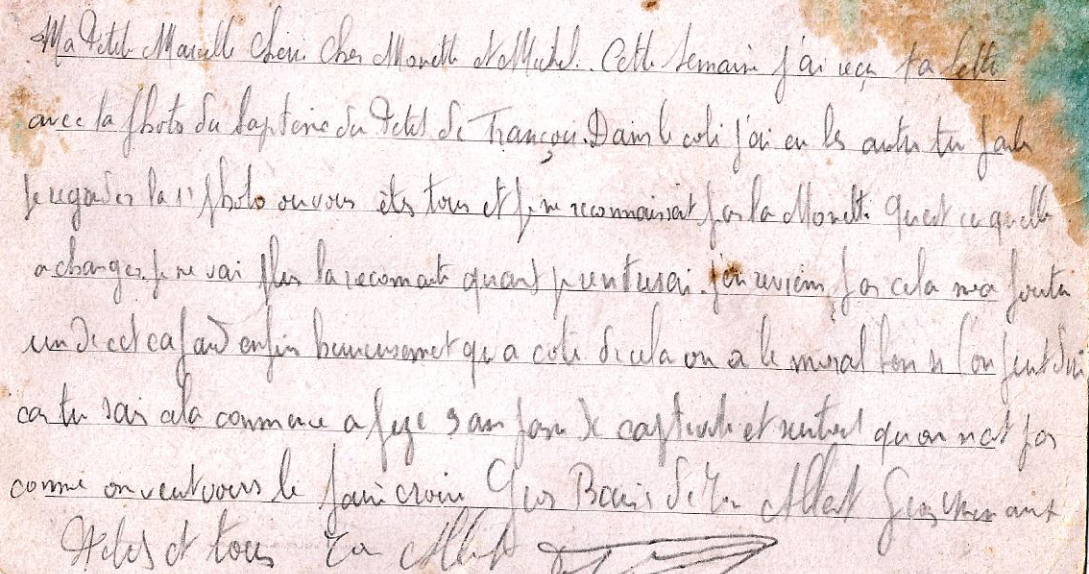 Ma Petite Marcelle Chérie Cher Monette et Michel. Cette semaine j'ai reçu ta lettre
avec la photo du bapteme du Petit de François. Dans le coli j'ai eu les autre tu parle
je regardes la 1° photo ou vous êtes tous et je ne reconnaissait pas la Monette. Quest ce quelle
a changer. je ne vai plus la reconnaite quant je rentrerai. j'en reviens pas cela ma foutu
un de cet cafard enfin heureusement qu a coté de cela on a le moral bon si l'on peut dire
car tu sais cela commence a peze 3 an pase de captivite et surtout quon nest pas
comme on veut vous le faire croire Gros Baiser de Ton Albert Gros Mimi aux
Petits et tous Ton Albert